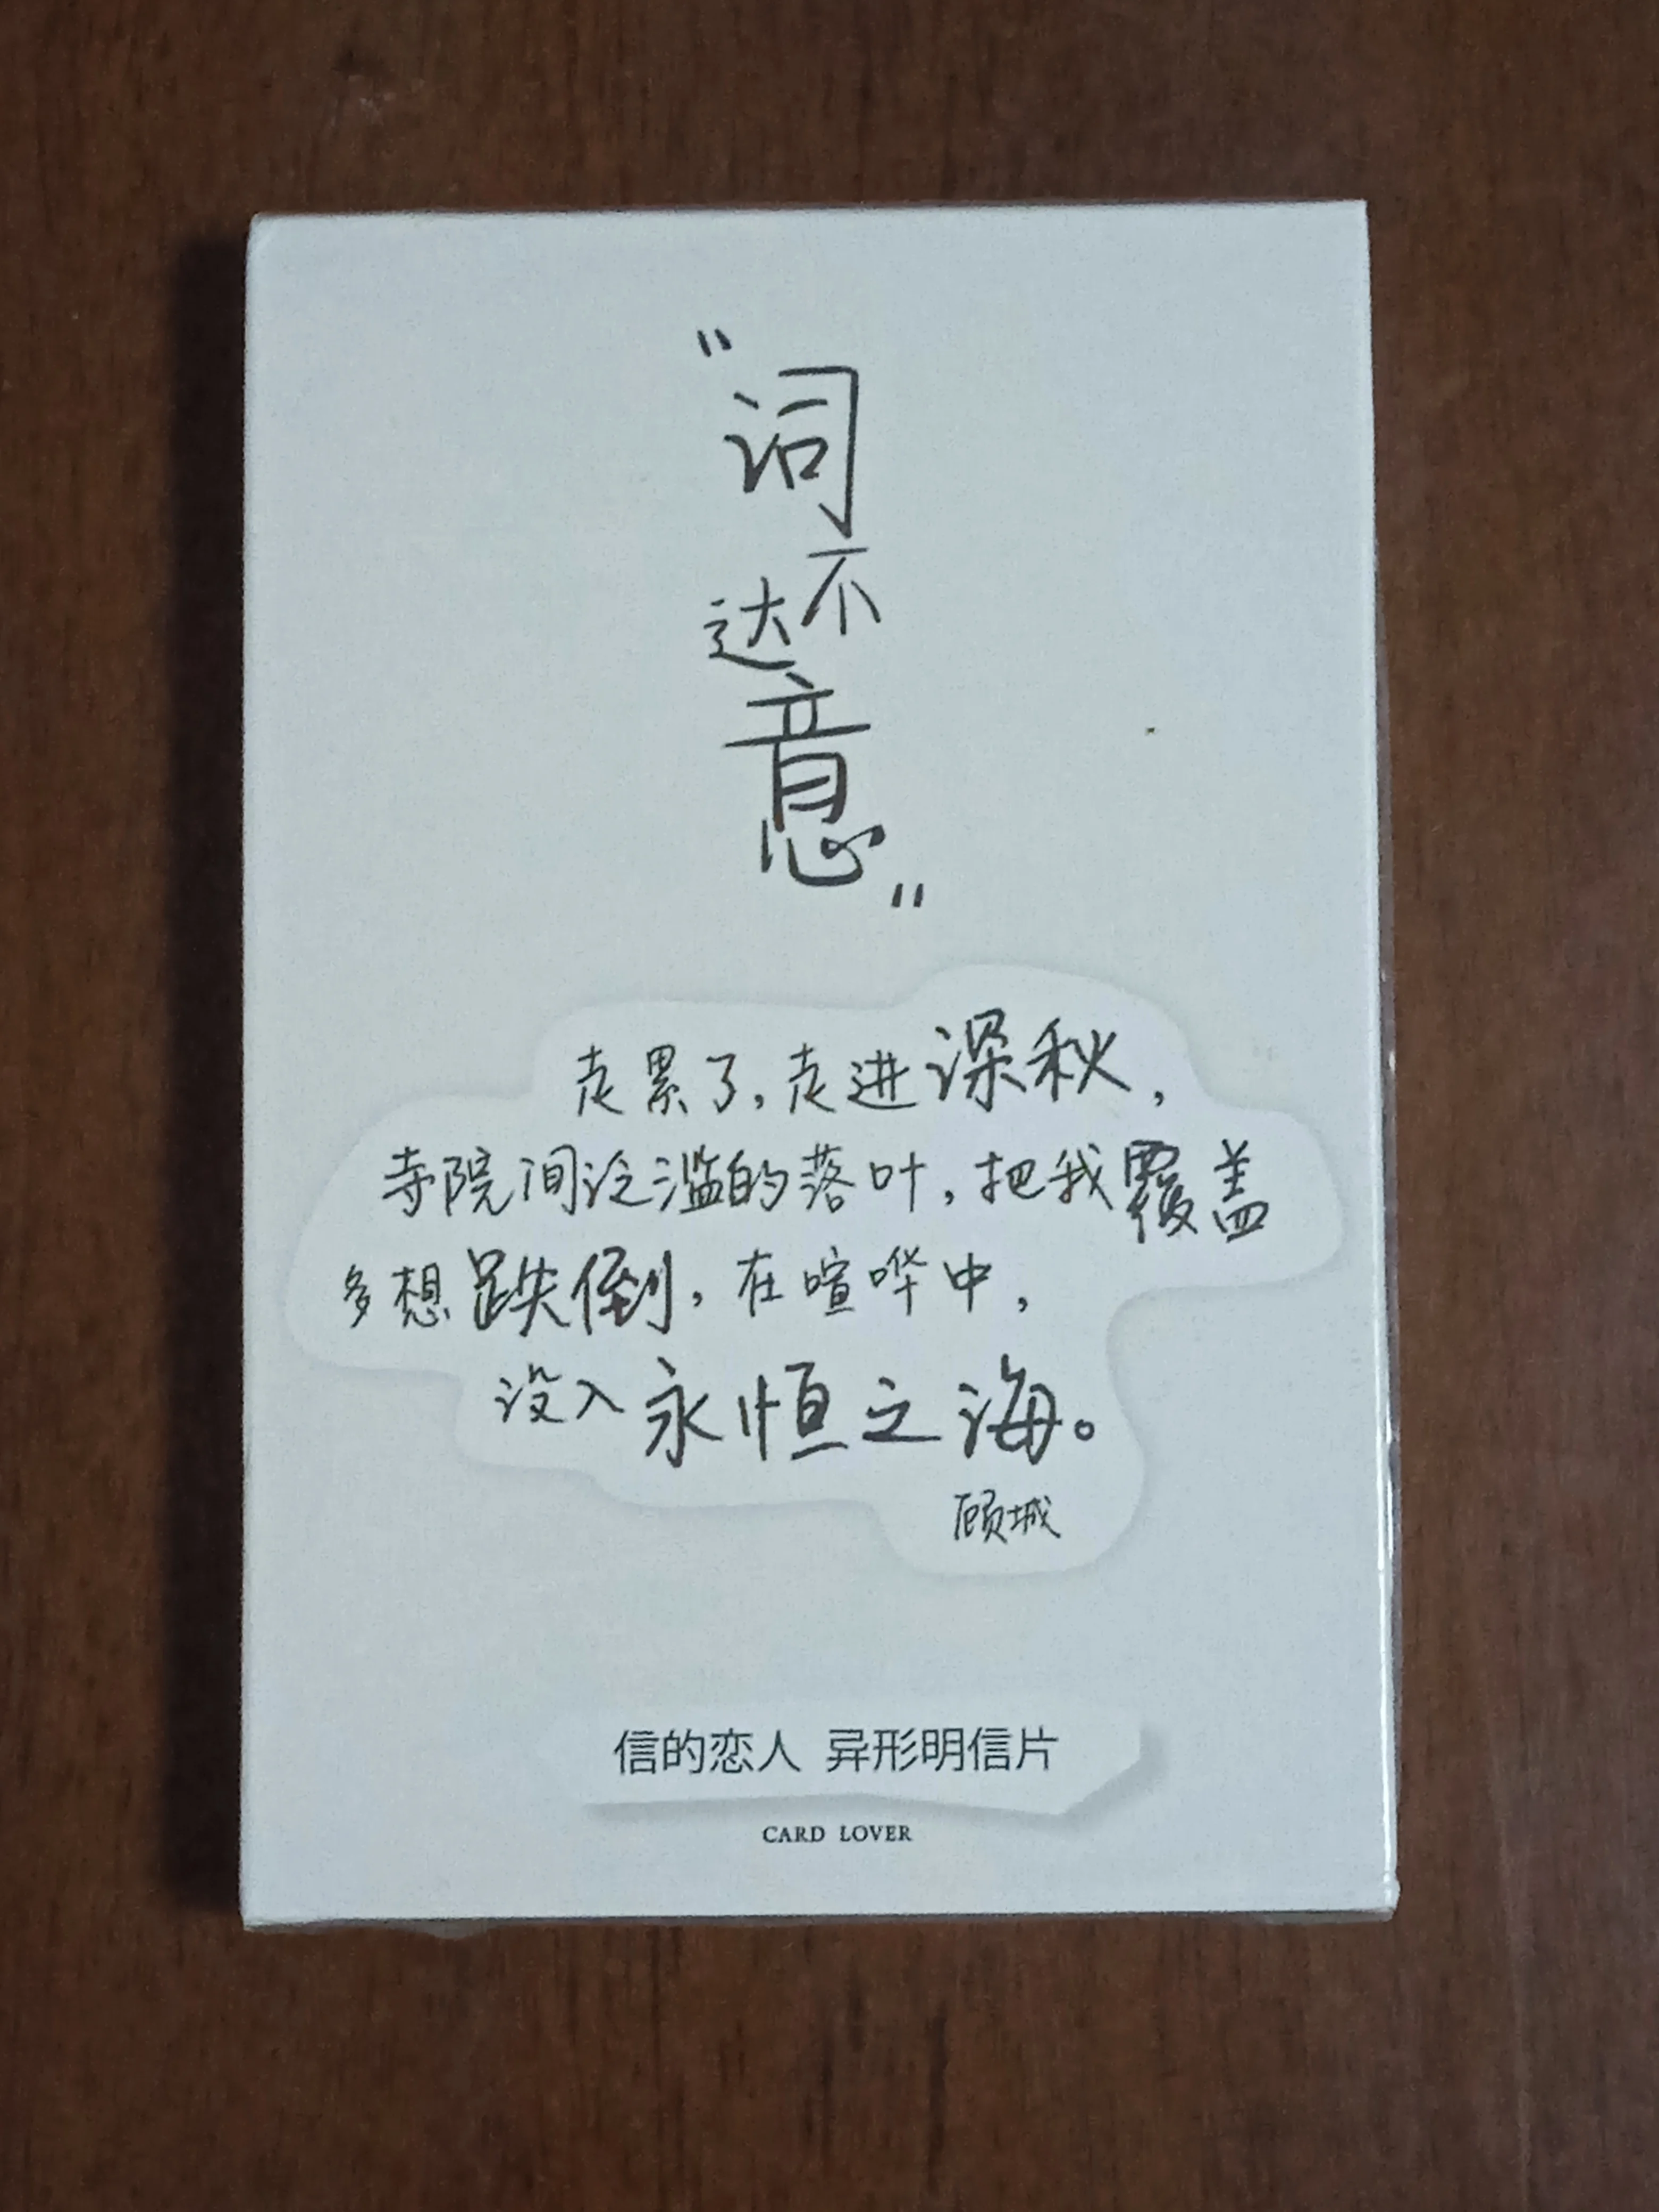 “词不达意”
走累了，走进深秋，
寺院间泛滥的落叶，把我覆盖
多想跌倒，在喧哗中，
没入永恒之海。
顾城
信的恋人 异形明信片
CARD LOVER